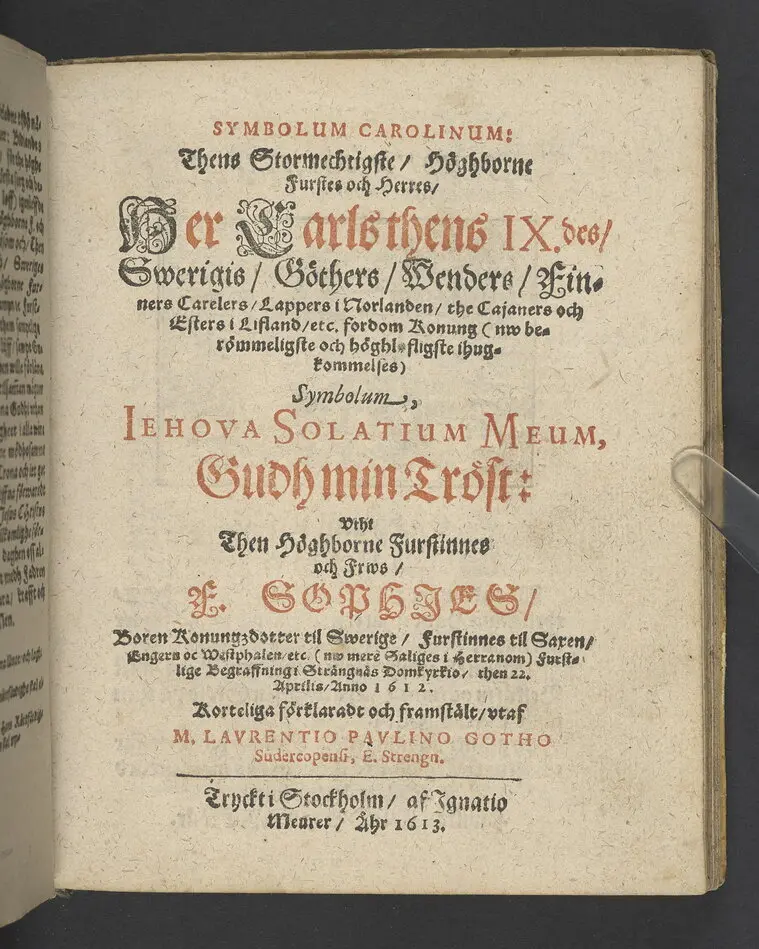 SYMBOLUM CAROLINUM:
Thens Stormechtigste / Höghborne
Furstes och Herres /
Her Carls thens IX. des /
Swerigis / Göthers / Wenders / Fin-
ners Carelers / Lappers i Norlanden / the Cajaners och
Esters i Lifland / etc. fordom Konung ( nw be-
römmeligste och höghl fligste ihug-
kommelses )
Symbolum,
IEHOVA SOLATIUM MEUM,
Gudh min Tröst:
Vthi
Then Höghborne Furstinnes
och Frws /
F. SOPHIES /
Boren Konungzdotter til Swerige / Furstinnes til Saxen /
Engern oc Westphalen / etc. ( nw mere Saliges i Herranom ) Furst-
lige Begraffning i Strängnäs Domkyrkio / then 22.
Aprilis / Anno 1612.
Korteliga förklaradt och framstält / vtaf
M. LAVRENTIO PAVLINO GOTHO
Sudercopensi, E. Strengn.
Tryckt i Stockholm / af Ignatio
Meurer / Åhr 1613.